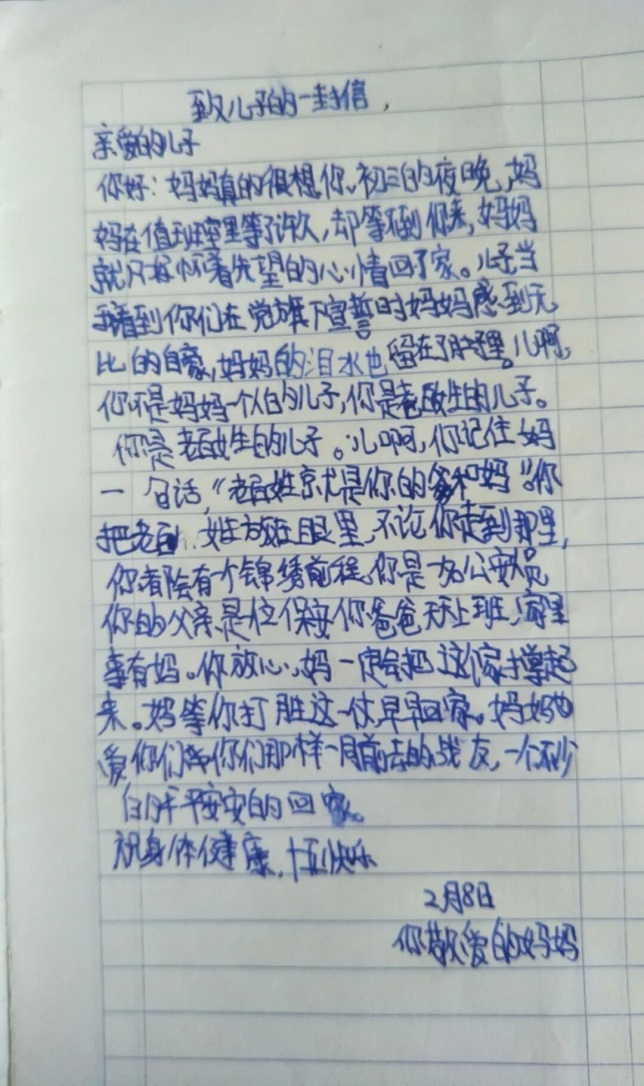 致儿子的一封信,
亲爱的儿子
你好：妈妈真的很想你。初三的夜晚,妈
妈在值班室里等了许久,却等不到你来,妈妈
就只好怀着失望的心情回了家。儿子当
我看到你们在党旗下宣誓时妈妈感到无
比的自豪,妈妈的泪水也留在了心里。儿啊,
你不是妈妈一个人的儿子,你是老百姓的儿子。
你是老百姓的儿子。儿啊,你记住妈
一句话,“老百姓京尤是你的爹和妈”。你
把老百姓放在眼里,不论你走到那里,
你都会有个锦绣前程,你是一名公安员
你的父亲是位保安你爸爸天天上班,家里
事有妈。你放心,妈一定会把这个家撑起
来。妈等你打胜这一仗早早回家。妈妈也
爱你们和你们那样一同前去的战友,一个不少
的平平安安的回家。
祝身体健康,十五快乐
2月8日
你敬爱的妈妈